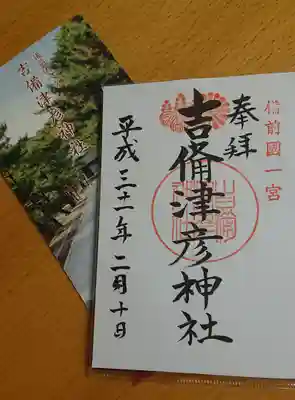 備前國一宮
奉拝
吉備津彦神社
平成三十一年二月十日
吉備津彦神社